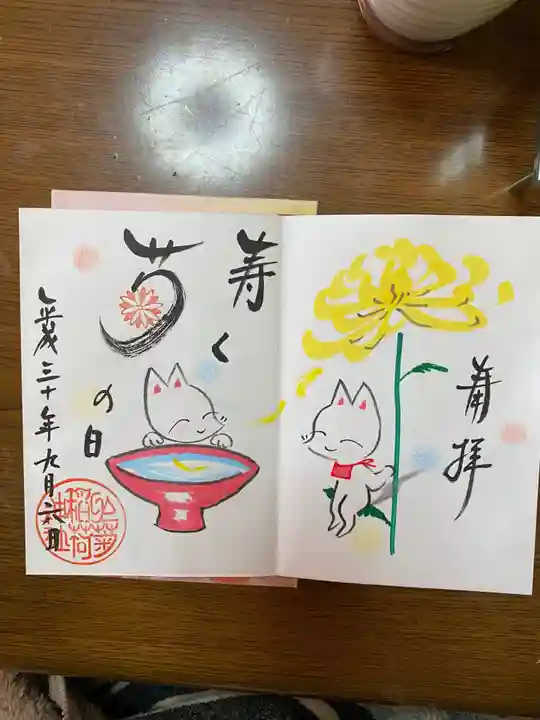 奉拝
寿く
菊
の日
平成三十年九月六日
稲荷
神社